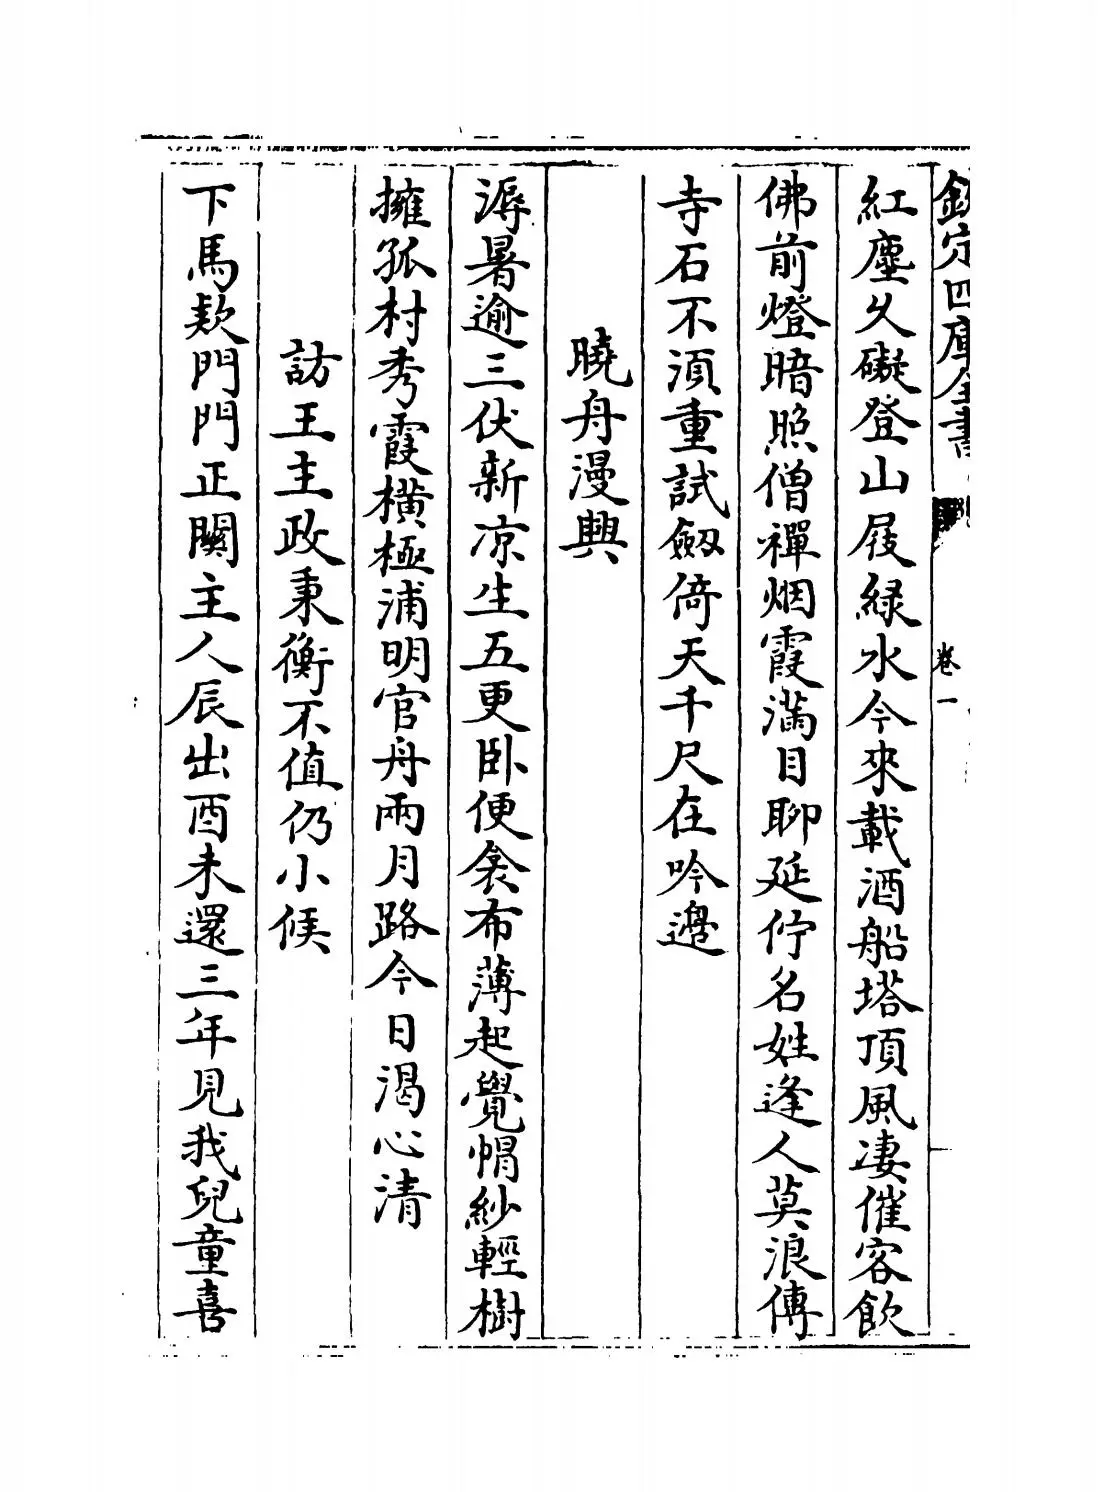 欽定四庫全書
卷一
紅塵久礙登山屐綠水今來載酒船塔頂風凄催客飲
佛前燈暗照僧禪烟霞滿目聊延佇名姓逢人莫浪傳
寺石不須重試劔倚天千尺在吟邊
曉舟漫興
溽暑逾三伏新凉生五更卧便衾布薄起覺帽紗輕樹
擁孤村秀霞橫極浦明官舟兩月路今日渴心清
訪王主政秉衡不值仍小候
下馬欵門門正關主人辰出酉未還三年見我兒童喜